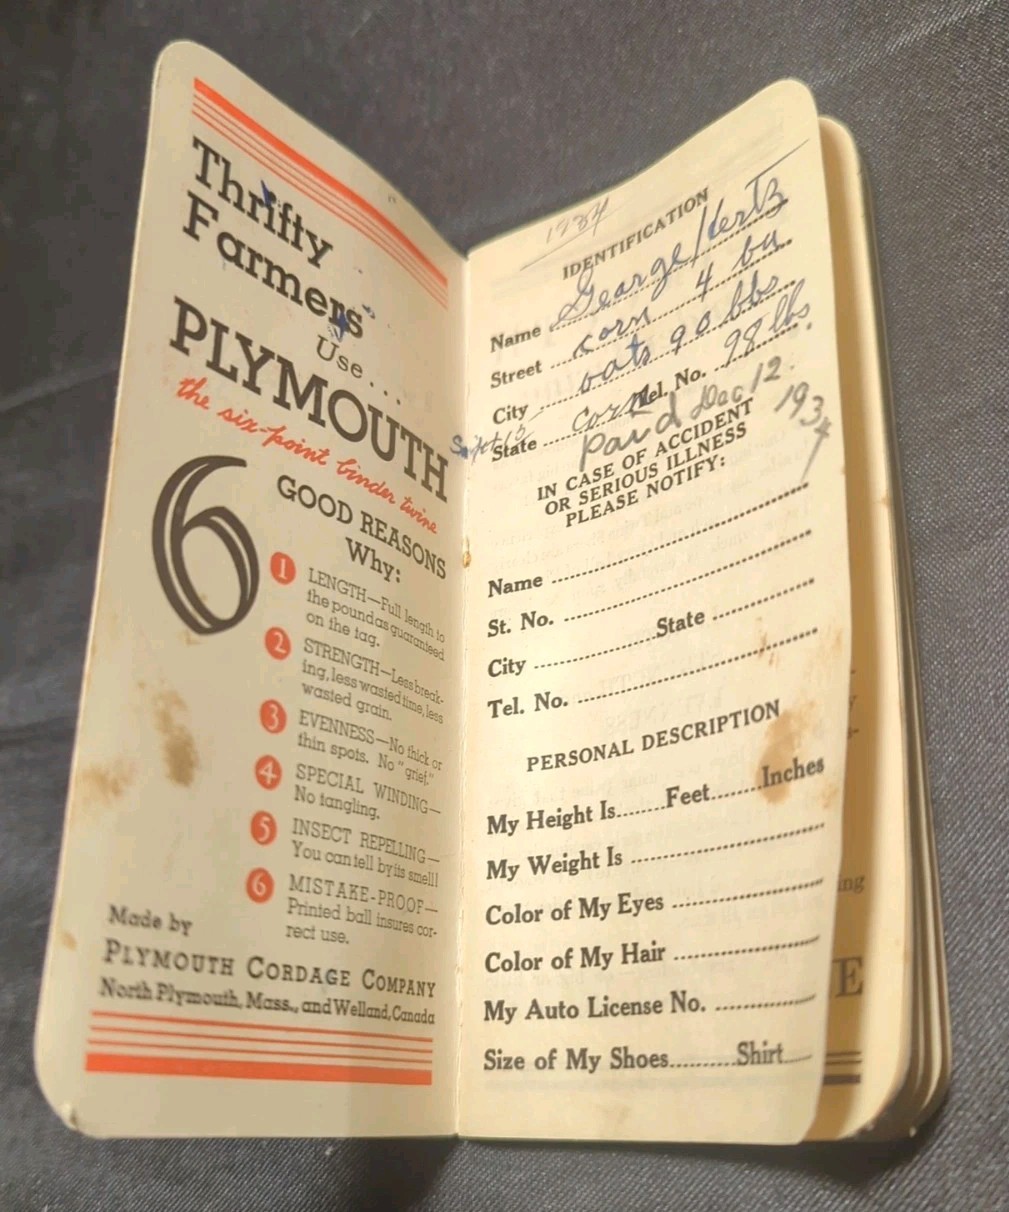 Thrifty
Farmers
Use....
PLYMOUTH
the six-point binder twine
6
GOOD REASONS
Why:
1 LENGTH—Full length to
the pound as guaranteed
on the tag.
2 STRENGTH—Less break-
ing, less wasted time, less
wasted grain.
3 EVENNESS—No thick or
thin spots. No "grief."
4 SPECIAL WINDING—
No tangling.
5 INSECT REPELLING—
You can tell by its smell!
6 MISTAKE-PROOF—
Printed ball insures cor-
rect use.
Made by
PLYMOUTH CORDAGE COMPANY
North Plymouth, Mass., and Welland, Canada
1934
IDENTIFICATION
Name George Hertz
Street corn 4 bu
City oats 90 lbs
State Corn Tel. No. 98 lbs.
Sept 15
Paid Dec 12. 1934
IN CASE OF ACCIDENT
OR SERIOUS ILLNESS
PLEASE NOTIFY:
Name
St. No.
City State
Tel. No.
PERSONAL DESCRIPTION
My Height Is Feet Inches
My Weight Is
Color of My Eyes
Color of My Hair
My Auto License No.
Size of My Shoes Shirt
ing
E